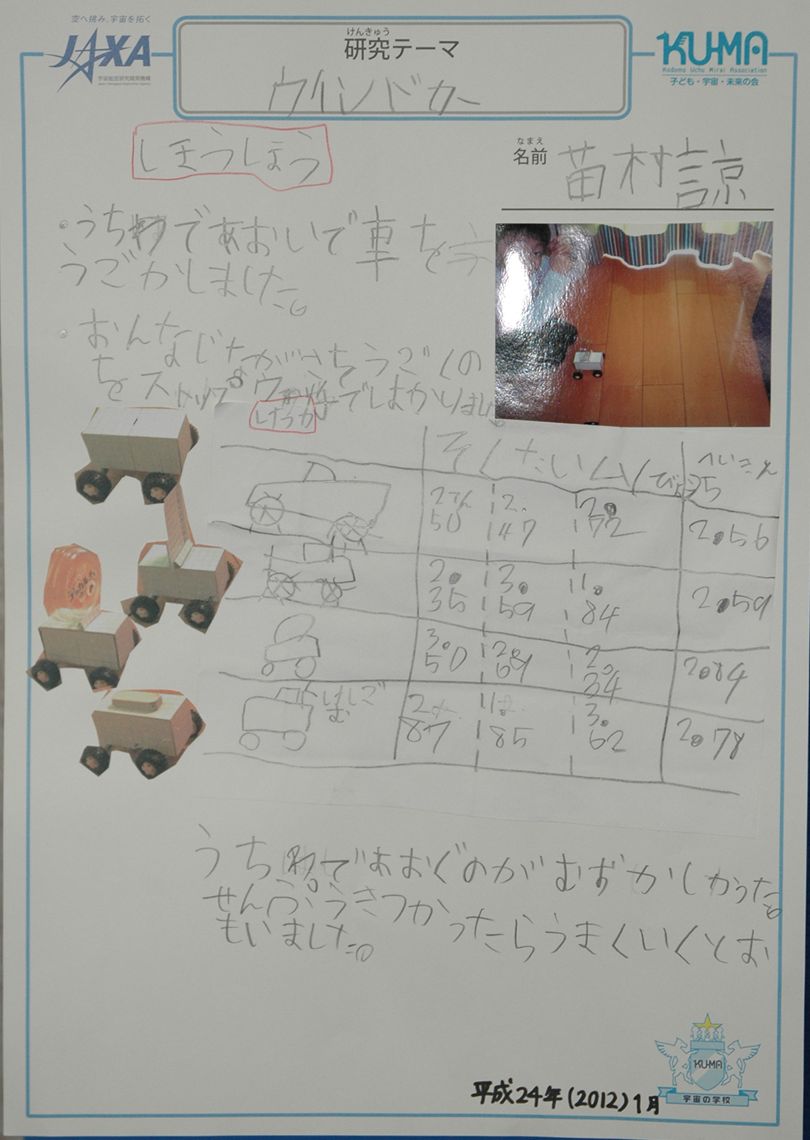 空へ挑み、宇宙を拓く
JAXA
宇宙航空研究開発機構
けんきゅう
研究テーマ
ウインドカー
KU-MA
Kodomo Uchu Mirai Association
子ども・宇宙・未来の会
しほうしほう
なまえ
名前 苗村諒
・うちわであおいで車を
うごかしました。
・おんなじながさをうごくの
をストップウォッチではかりました。
けっか
そくたいム(びょう)
へいきん
2.50 2.47 2.72 2.56
2.35 3.59 1.84 2.59
3.50 2.69 2.34 2.84
はしご
む
2.87 1.85 3.62 2.78
うちわであおぐのがむずかしかった。
せんぷうきつかったらうまくいくとお
もいました。
KU-MA
宇宙の学校
平成24年(2012)1月